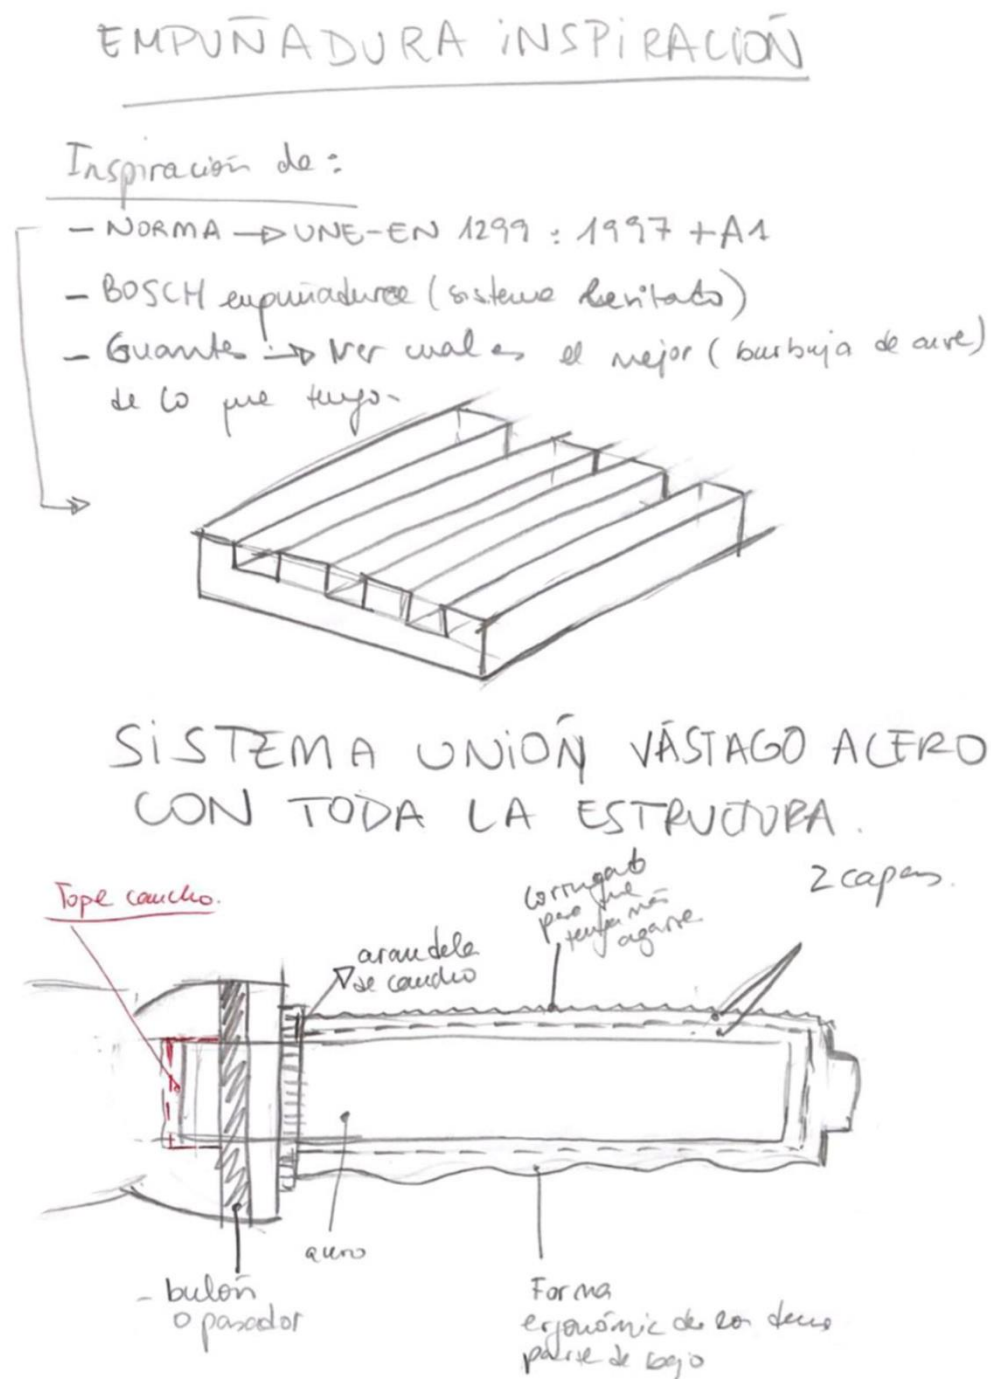 EMPUÑADURA INSPIRACIÓN
Inspiración de:
- NORMA → UNE-EN 1299 : 1997 + A1
- BOSCH empuñadura (sistema
- Guantes → Ver cual es el mejor (burbuja de aire)
de lo que tengo.
SISTEMA UNIÓN VÁSTAGO ACERO
CON TODA LA ESTRUCTURA.
Tope caucho.
arandela
de caucho
corrugado
para que
tenga más
agarre
2 capas.
acero
- bulón
o pasador
Forma
ergonómic de los dedos
parte de bajo